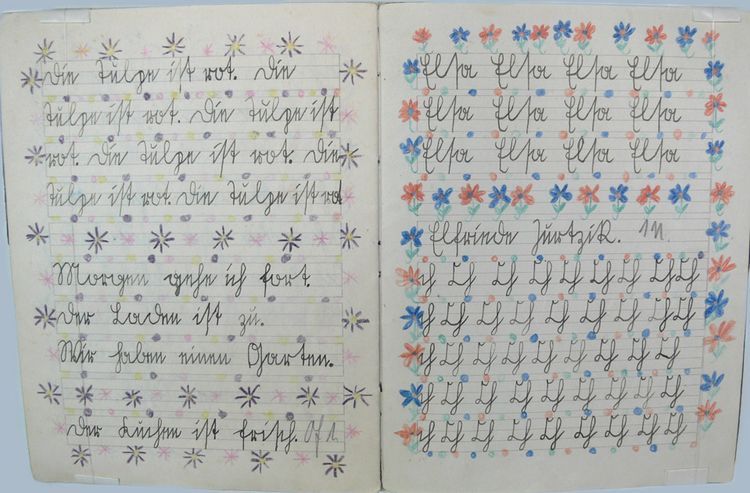 Die Tulpe ist rot. Die
Tulpe ist rot. Die Tulpe ist
rot. Die Tulpe ist rot. Die
Tulpe ist rot. Die Tulpe ist ro
Morgen gehe ich fort.
Der Laden ist zu.
Wir haben einen Garten.
Der Kuchen ist frisch.
Elsa Elsa Elsa Elsa
Elsa Elsa Elsa Elsa
Elsa Elsa Elsa Elsa
Elfriede Zurtzik.
ch Ch Ch Ch Ch Ch Ch Ch Ch
Ch Ch Ch Ch Ch Ch Ch Ch Ch
ch Ch Ch Ch Ch Ch Ch Ch Ch
Ch Ch Ch Ch Ch Ch Ch Ch Ch
ch Ch Ch Ch Ch Ch Ch Ch Ch